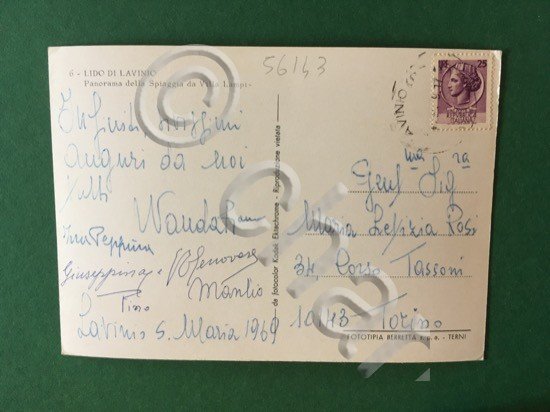 56143
6 - LIDO DI LAVINIO
Panorama della Spiaggia da Villa Lampi
25
LAVINIO
auguri da noi
tutti
Wanda
Peppina
Giuseppina e Genovese
Pino Manlio
Lavinio S. Maria 1969
da fotocolor Kodak Ektachrome - Riproduzione vietata
Gent ma Sig ra
Maria Letizia Rosi
34 Corso Tassoni
10143 - Torino
FOTOTIPIA BERRETTA s.p.a. - TERNI